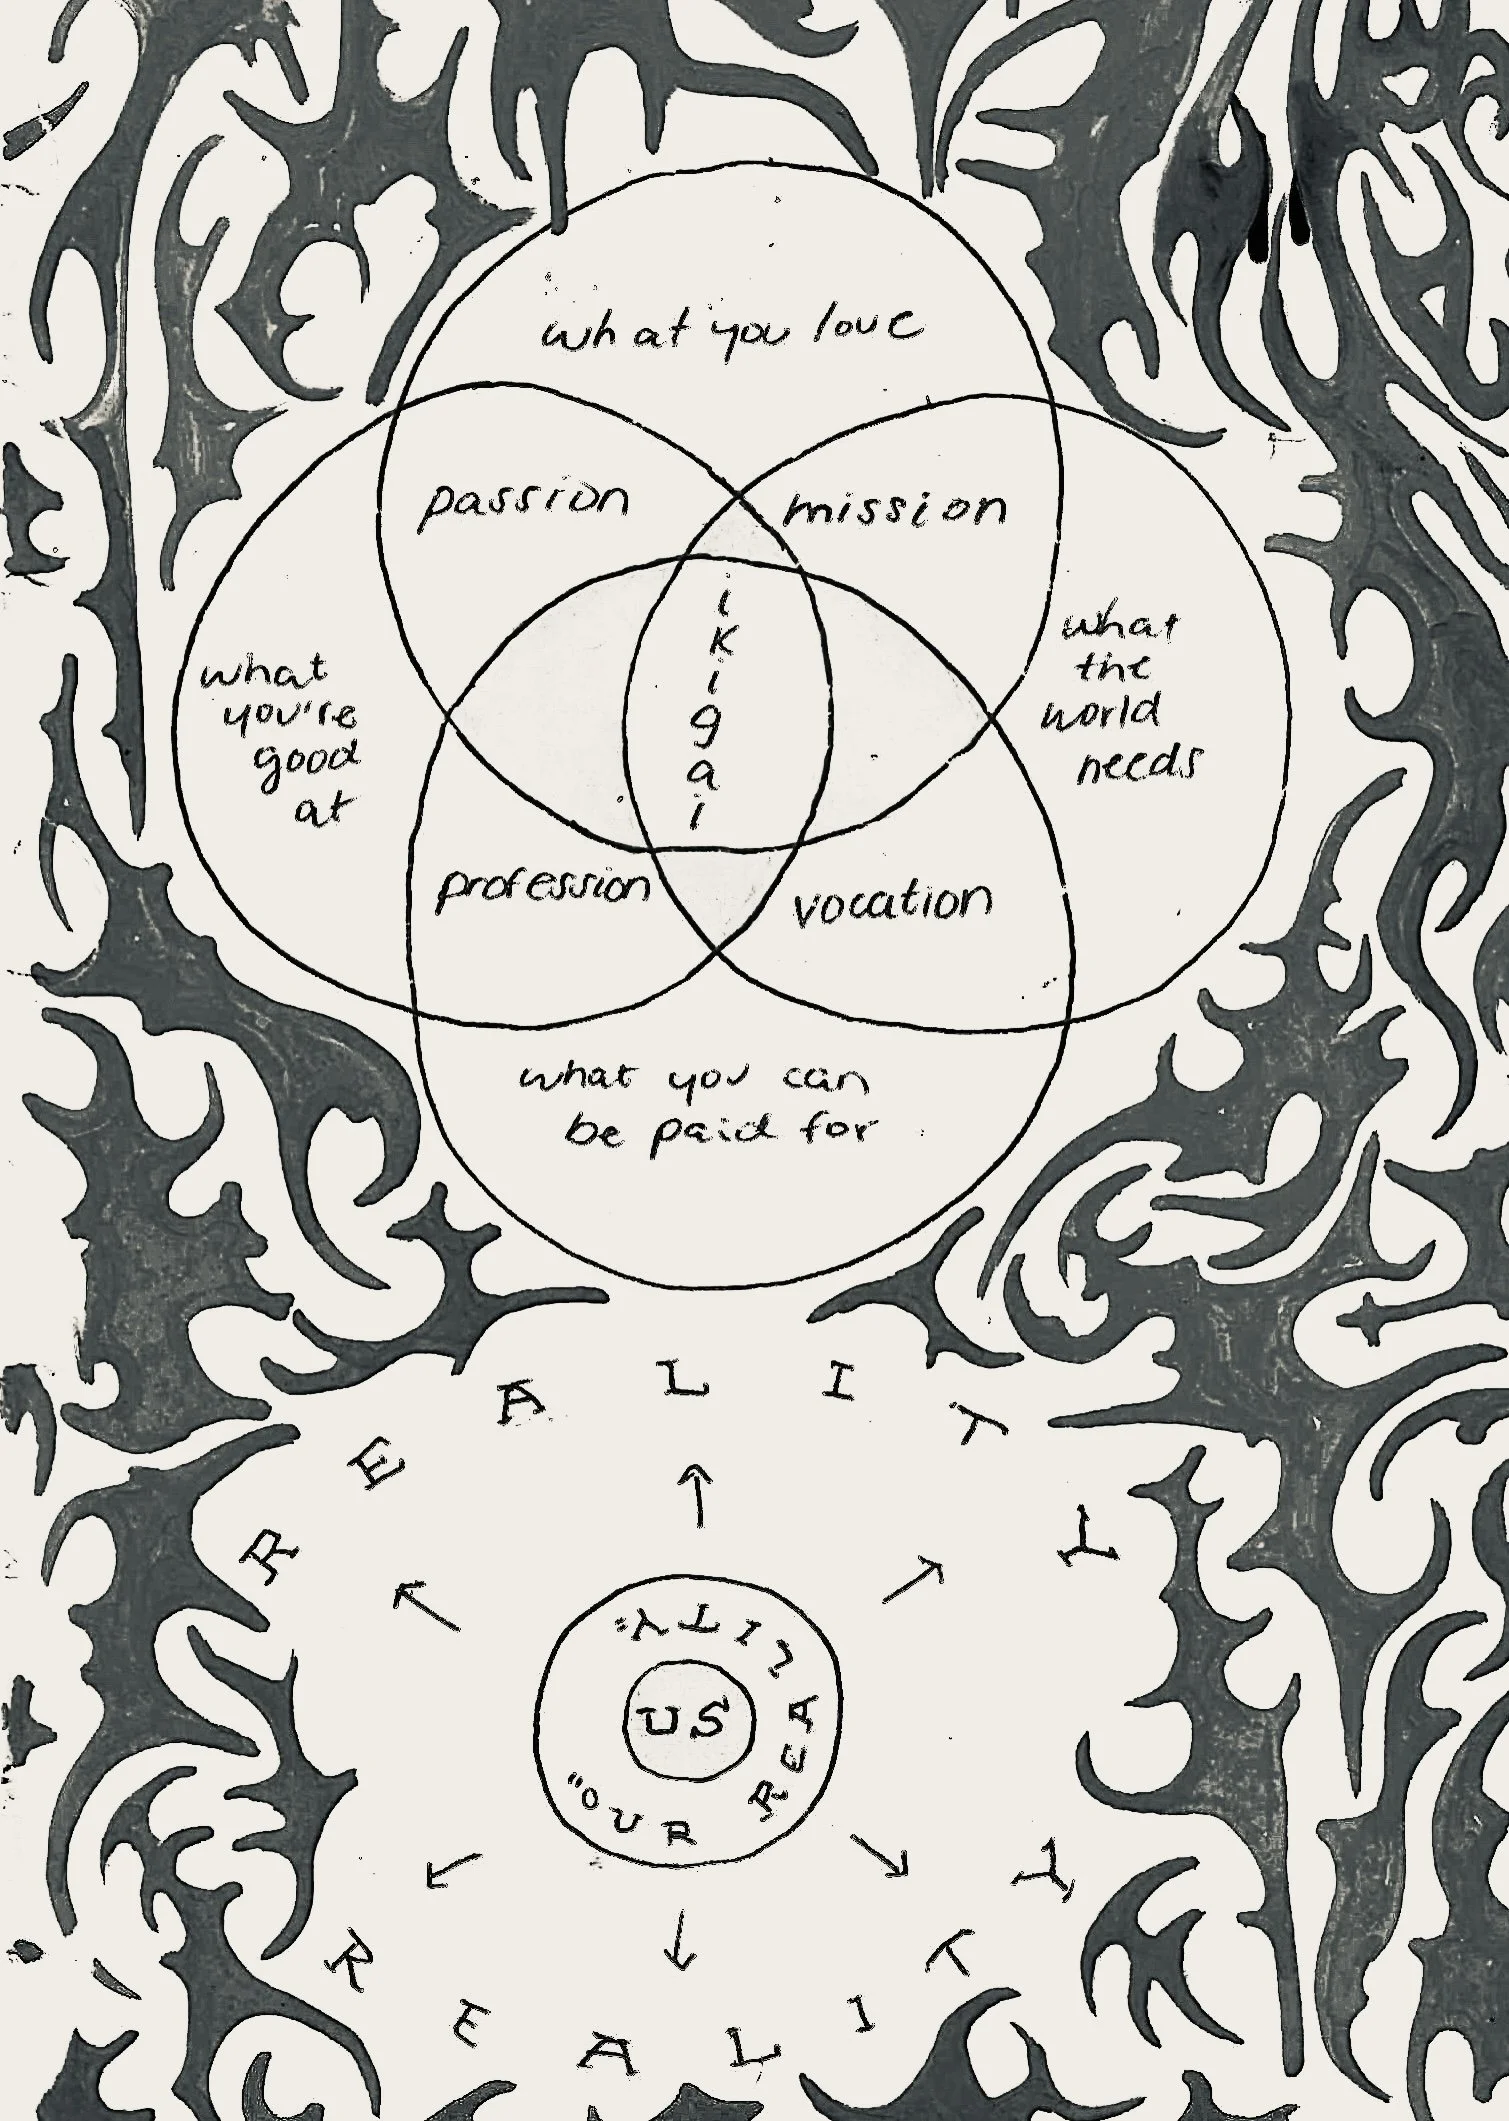 what you love
passion
mission
ikigai
what
you're
good
at
what
the
world
needs
profession
vocation
what you can
be paid for
REALITY
"OUR REALITY"
US
REALITY